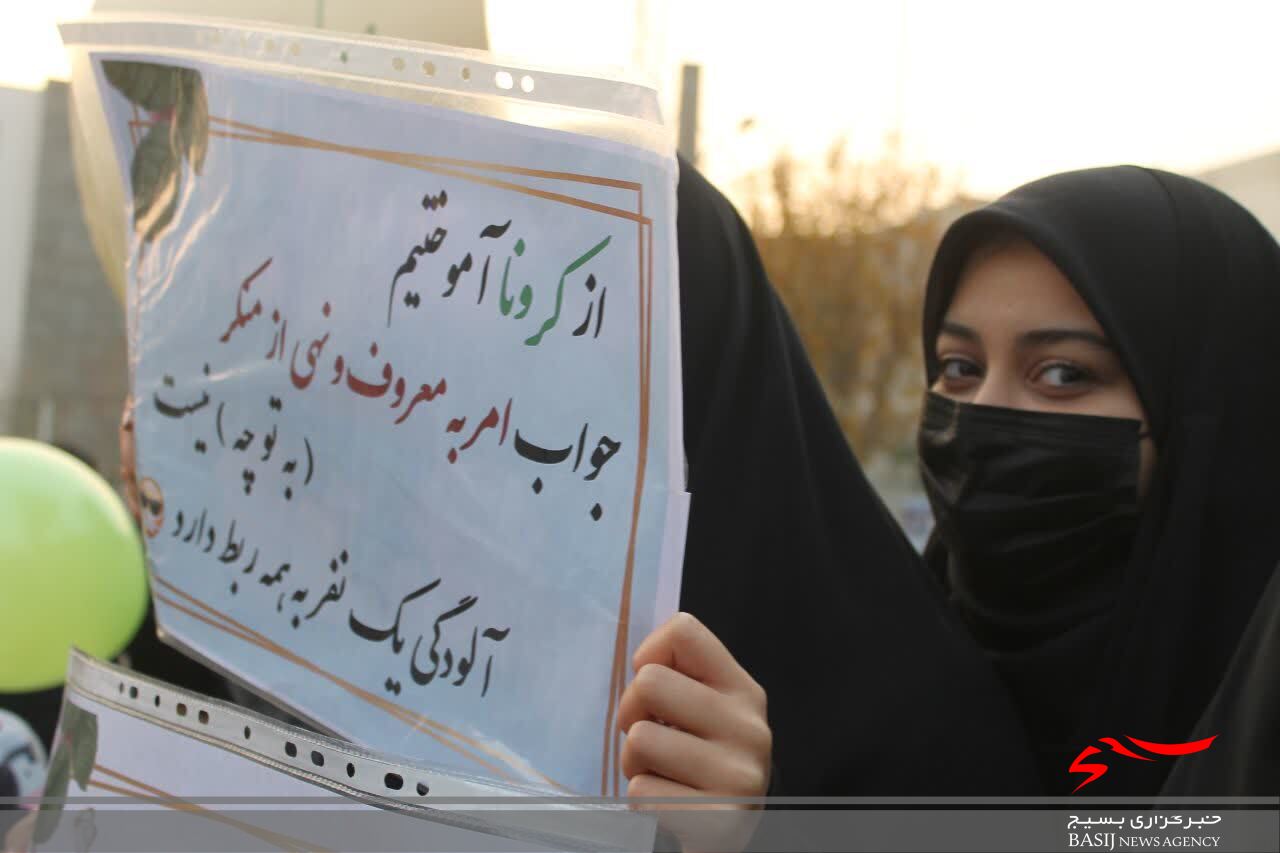 از کرونا آموختیم
جواب امر به معروف و نهی از منکر
(به تو چه) نیست
آلودگی یک نفر به همه ربط دارد
بسیج
خبرگزاری بسیج
BASIJ NEWS AGENCY